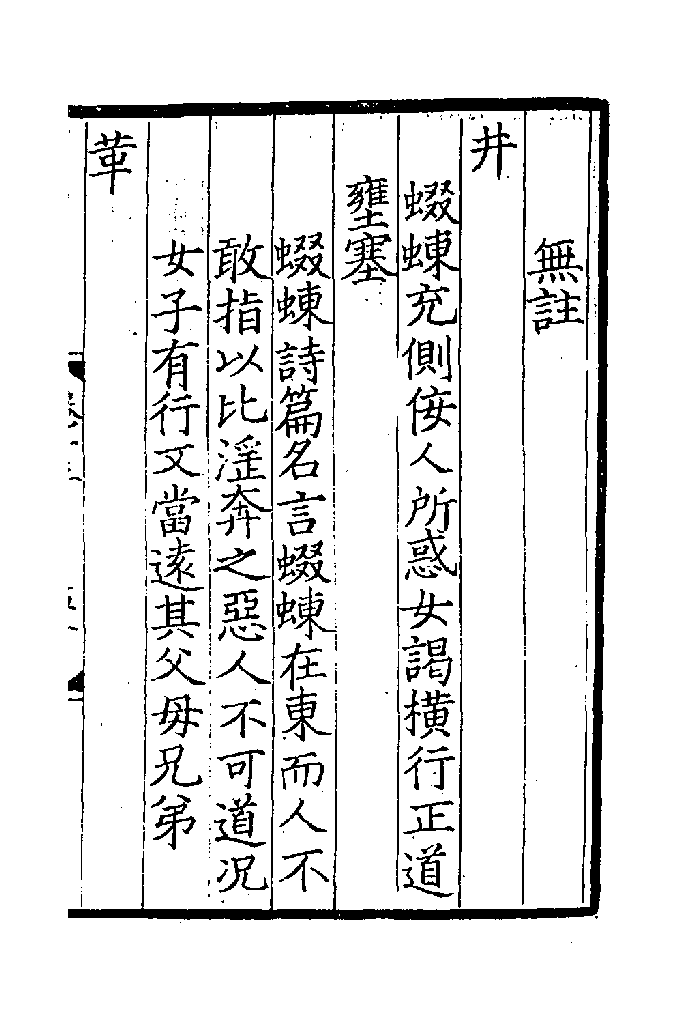 無註
井
蝃蝀充側佞人所惑女謁橫行正道
壅塞
蝃蝀詩篇名言蝃蝀在東而人不
敢指以比淫奔之惡人不可道況
女子有行又當逺其父母兄弟
革